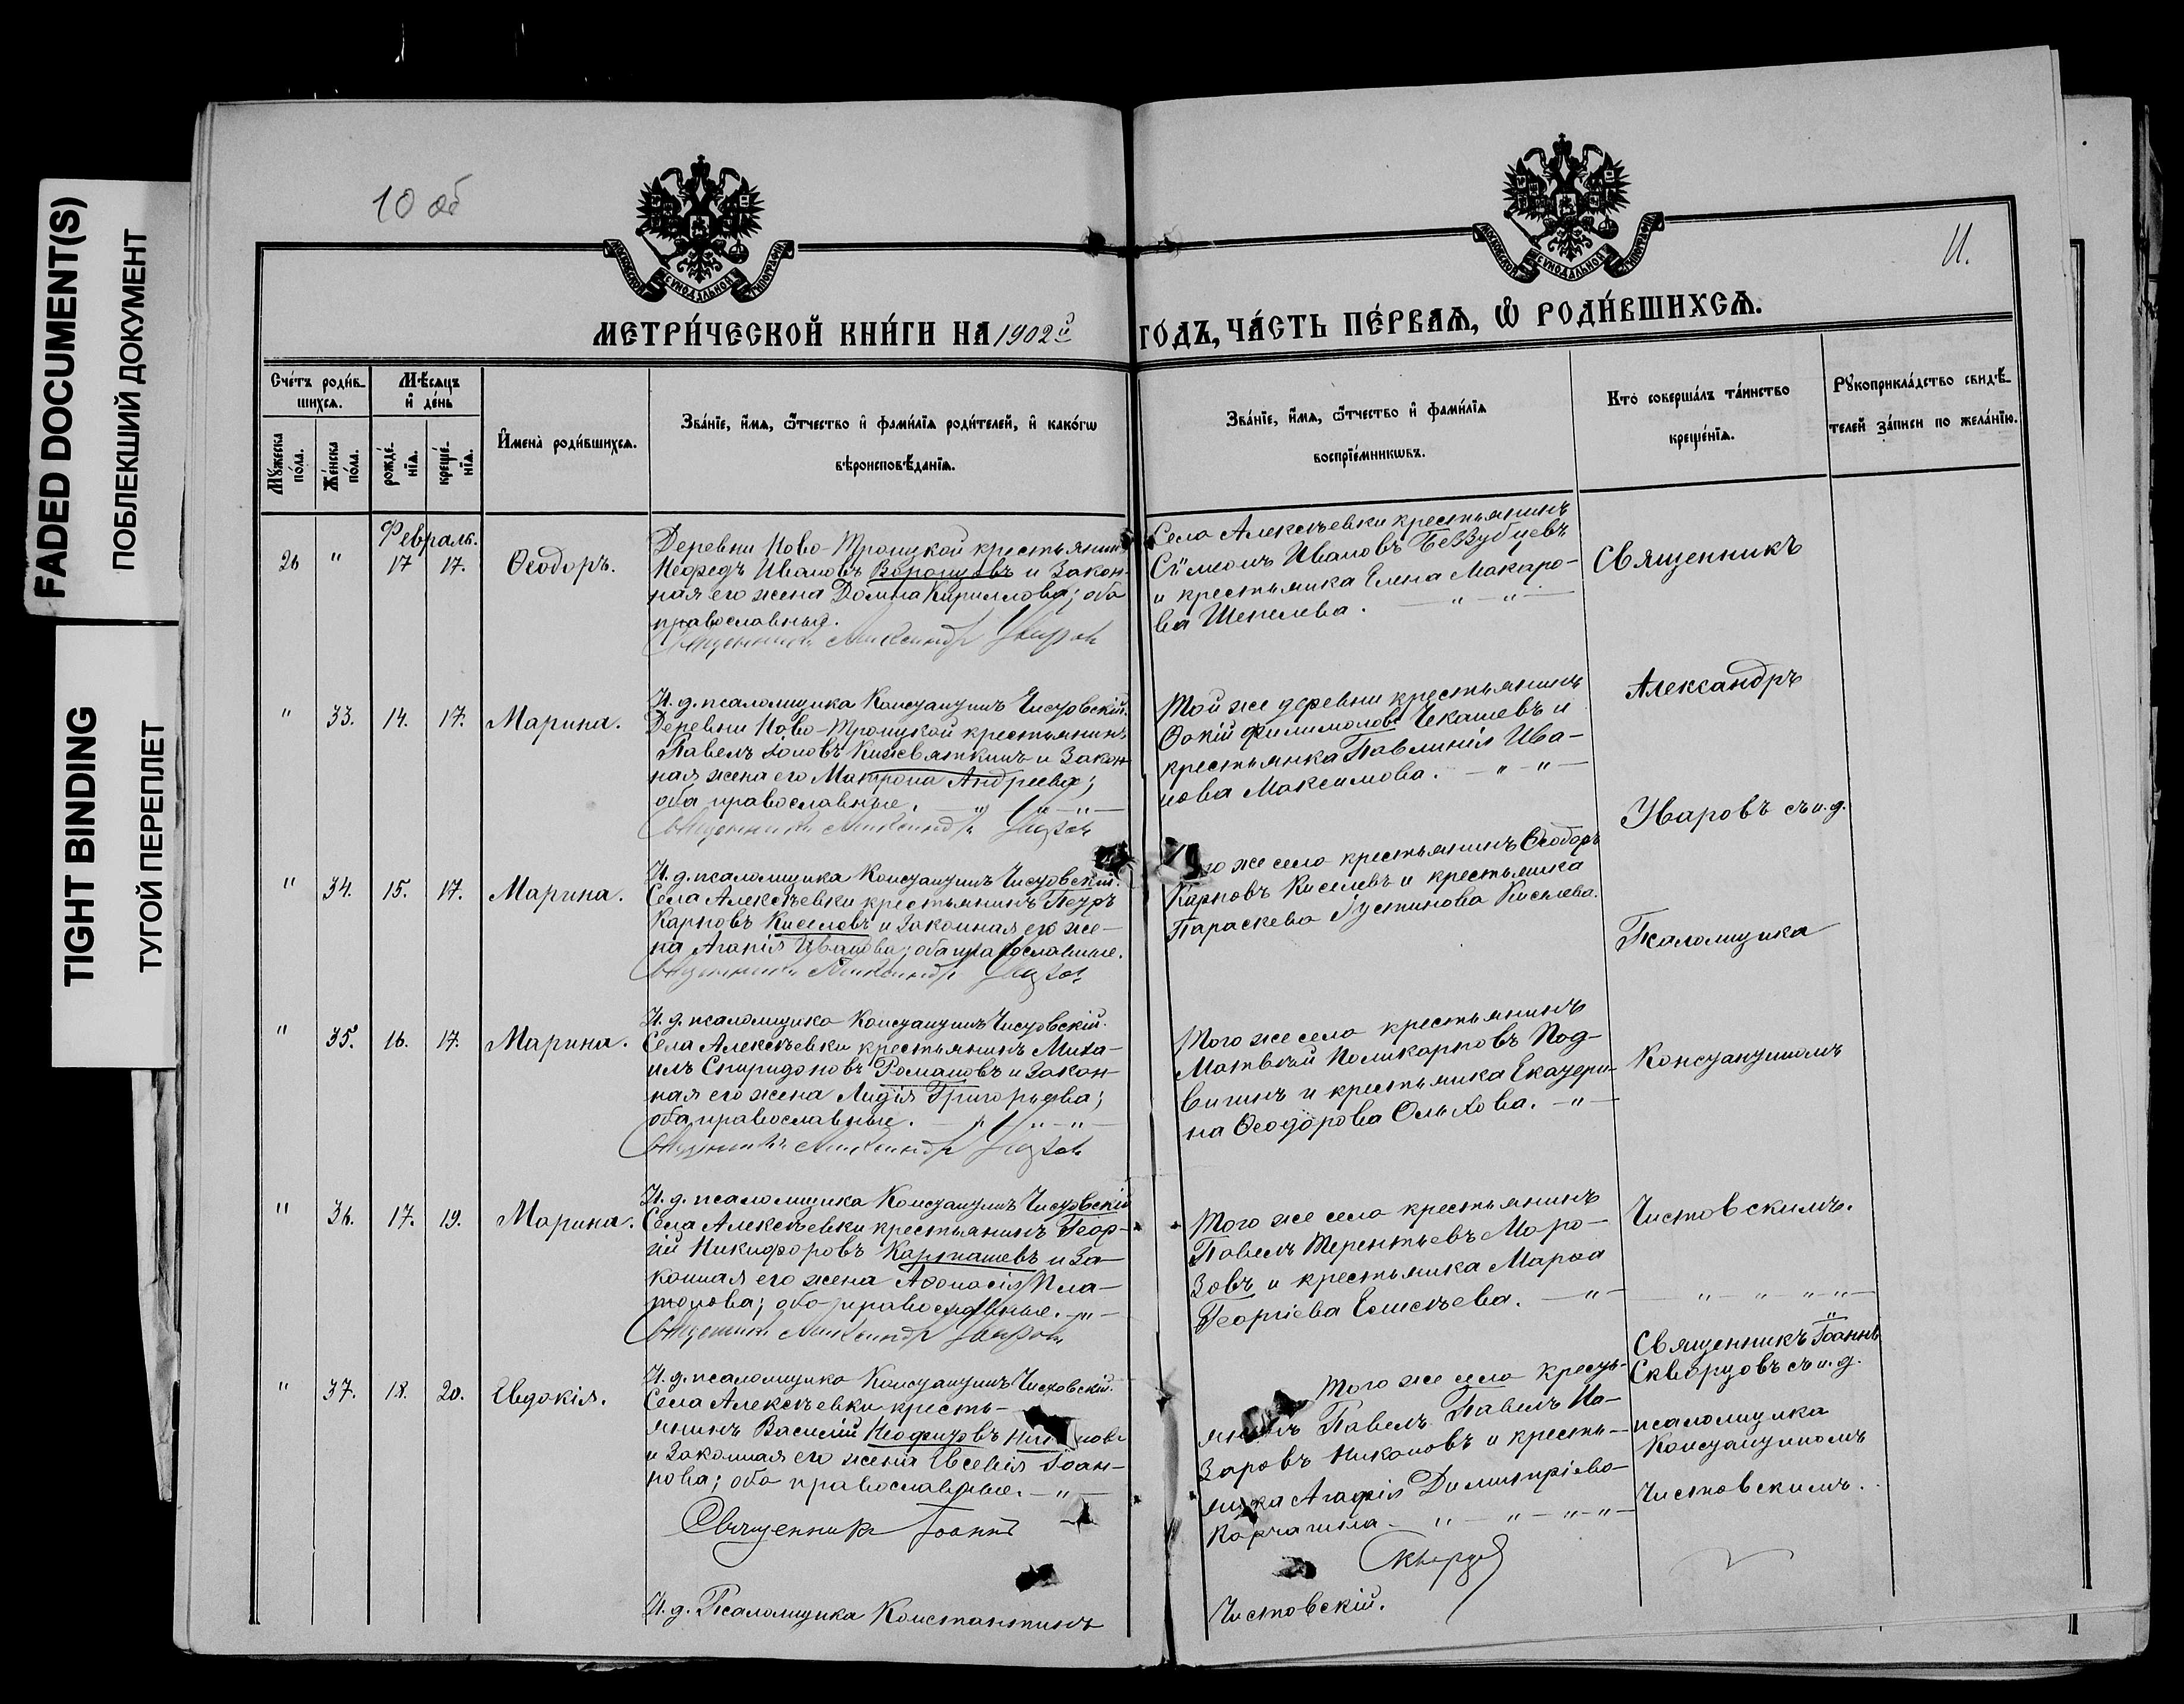 FADED DOCUMENT(S)
ПОБЛЕКШИЙ ДОКУМЕНТ
TIGHT BINDING
ТУГОЙ ПЕРЕПЛЕТ
10 об
11.
МОСКОВСКОЙ СѴНОДАЛЬНОЙ ТИПОГРАФІИ
МОСКОВСКОЙ СѴНОДАЛЬНОЙ ТИПОГРАФІИ
МЕТРИ́ЧЕСКОЙ КНИ́ГИ НА 1902й ГО́ДЪ, ЧА́СТЬ ПЕ́РВАѦ, Ѡ РОДИ́ВШИХСѦ.
Сче́тъ роди́в-
шихсѧ.
Мꙋ́жеска по́ла.
Же́нска по́ла.
Мѣ́сѧцъ и де́нь
рожде́-
нїѧ.
креще́-
нїѧ.
И҆мена̀ роди́вшихсѧ.
Зва́нїе, и҆́мѧ, ѻ҆́тчество и҆ фами́лїѧ роди́телей, и҆ како́гѡ
вѣроисповѣ́данїѧ.
Зва́нїе, и҆́мѧ, ѻ҆́тчество и҆ фами́лїѧ
воспрїе́мникѡвъ.
Кто̀ соверша́лъ та́инство
креще́нїѧ.
Рꙋкоприкла́дство свидѣ́-
телей за́писи по жела́нїю.
Февраль.
26 " 17 17. Ѳеодоръ.
Деревни Ново-Троицкой крестьянинъ
Иванов Воронцовъ и закон-
ная его жена Домна Кириллова; оба
православныя.
Священникъ Александръ Уваровъ
Села Алексѣевки крестьянинъ
Сѵмеонъ Ивановъ Беззубцевъ
и крестьянка Елена Макаро-
ва Шепелева. — " — " —
Священникъ
И. д. псаломщика Константинъ Чистовскій.
" 33. 14. 17. Марина.
Деревни Ново-Троицкой крестьянинъ
Павелъ Іоновъ Князевъ и закон-
ная жена его Матрона Андреева;
оба православные. — " — " —
Священникъ Александръ Уваровъ
Той же деревни крестьянинъ
Филимоновъ Чекашевъ и
крестьянка Павлинія Ива-
нова Максимова. — " — " —
Александръ
Уваровъ съ и. д.
И. д. псаломщика Константинъ Чистовскій.
" 34. 15. 17. Марина.
Села Алексѣевки крестьянинъ Петръ
Карповъ Киселевъ и законная его же-
на Агапія Иванова; оба православные.
Священникъ Александръ Уваровъ
Того же села крестьянинъ Ѳеодоръ
Карповъ Киселевъ и крестьянка
Параскева Іустинова Киселева.
Псаломщика
И. д. псаломщика Константинъ Чистовскій.
" 35. 16. 17. Марина.
Села Алексѣевки крестьянинъ Миха-
илъ Спиридоновъ Романовъ и закон-
ная его жена Лидія Григорьева;
оба православные. — " — " —
Священникъ Александръ Уваровъ
Того же села крестьянинъ
Матвѣй Поликарповъ Под-
вигинъ и крестьянка Екатери-
на Ѳеодорова Ольхова. — " —
Константиномъ
И. д. псаломщика Константинъ Чистовскій
" 36. 17. 19. Марина.
Села Алексѣевки крестьянинъ Геор-
гій Никифоровъ Карташевъ и за-
конная его жена Аѳанасія Пла-
тонова; оба православные. — " —
Священникъ Александръ Уваровъ
Того же села крестьянинъ
Павелъ Терентьевъ Моро-
зовъ и крестьянка Марѳа
Георгіева Елисѣева. — " —
Чистовскимъ.
— " — " — " — " —
И. д. псаломщика Константинъ Чистовскій.
" 37. 18. 20. Евдокія.
Села Алексѣевки кресть-
янинъ Василій Неофитовъ
и законная его жена Евсевія Іоан-
нова; оба православные. — " —
Священникъ Іоаннъ
Того же села кресть-
янинъ Павелъ Павелъ На-
заровъ Никоновъ и кресть-
янка Агафія Димитріева
Карташева — " — " — " —
Скворцов
Священникъ Іоаннъ
Скворцовъ съ и. д.
псаломщика
Константиномъ
Чистовскимъ.
И. д. Псаломщика Константинъ Чистовскій.